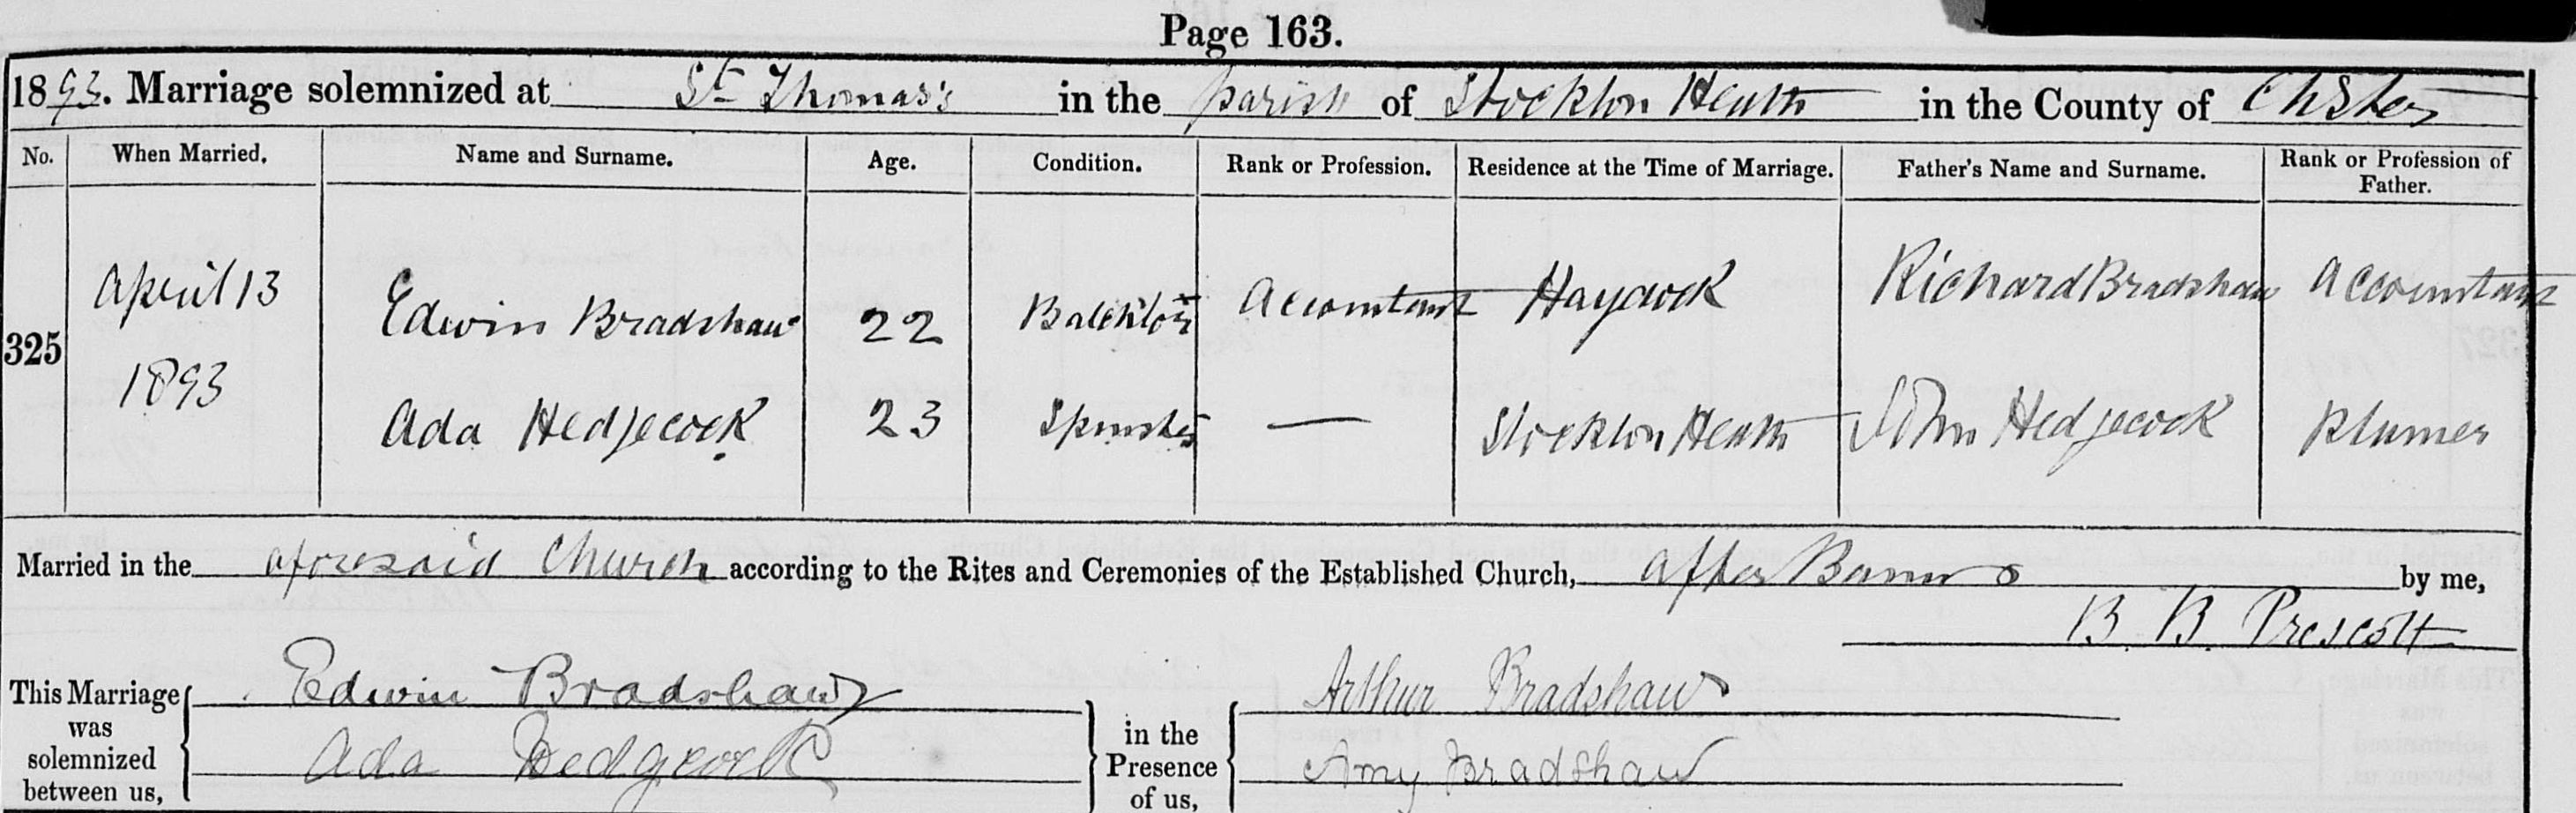 Page 163.
1893. Marriage solemnized at St Thomas's in the parish of Stockton Heath in the County of Chester
No. When Married. Name and Surname. Age. Condition. Rank or Profession. Residence at the Time of Marriage. Father's Name and Surname. Rank or Profession of Father.
325 April 13 1893
Edwin Bradshaw 22 Batchelor Accountant Haydock Richard Bradshaw Accountant
Ada Hedgecock 23 Spinster — Stockton Heath John Hedgecock Plumer
Married in the aforesaid Church according to the Rites and Ceremonies of the Established Church, after Banns by me,
B. B. Prescott
This Marriage was solemnized between us,
Edwin Bradshaw
Ada Hedgecock
in the Presence of us,
Arthur Bradshaw
Amy Bradshaw